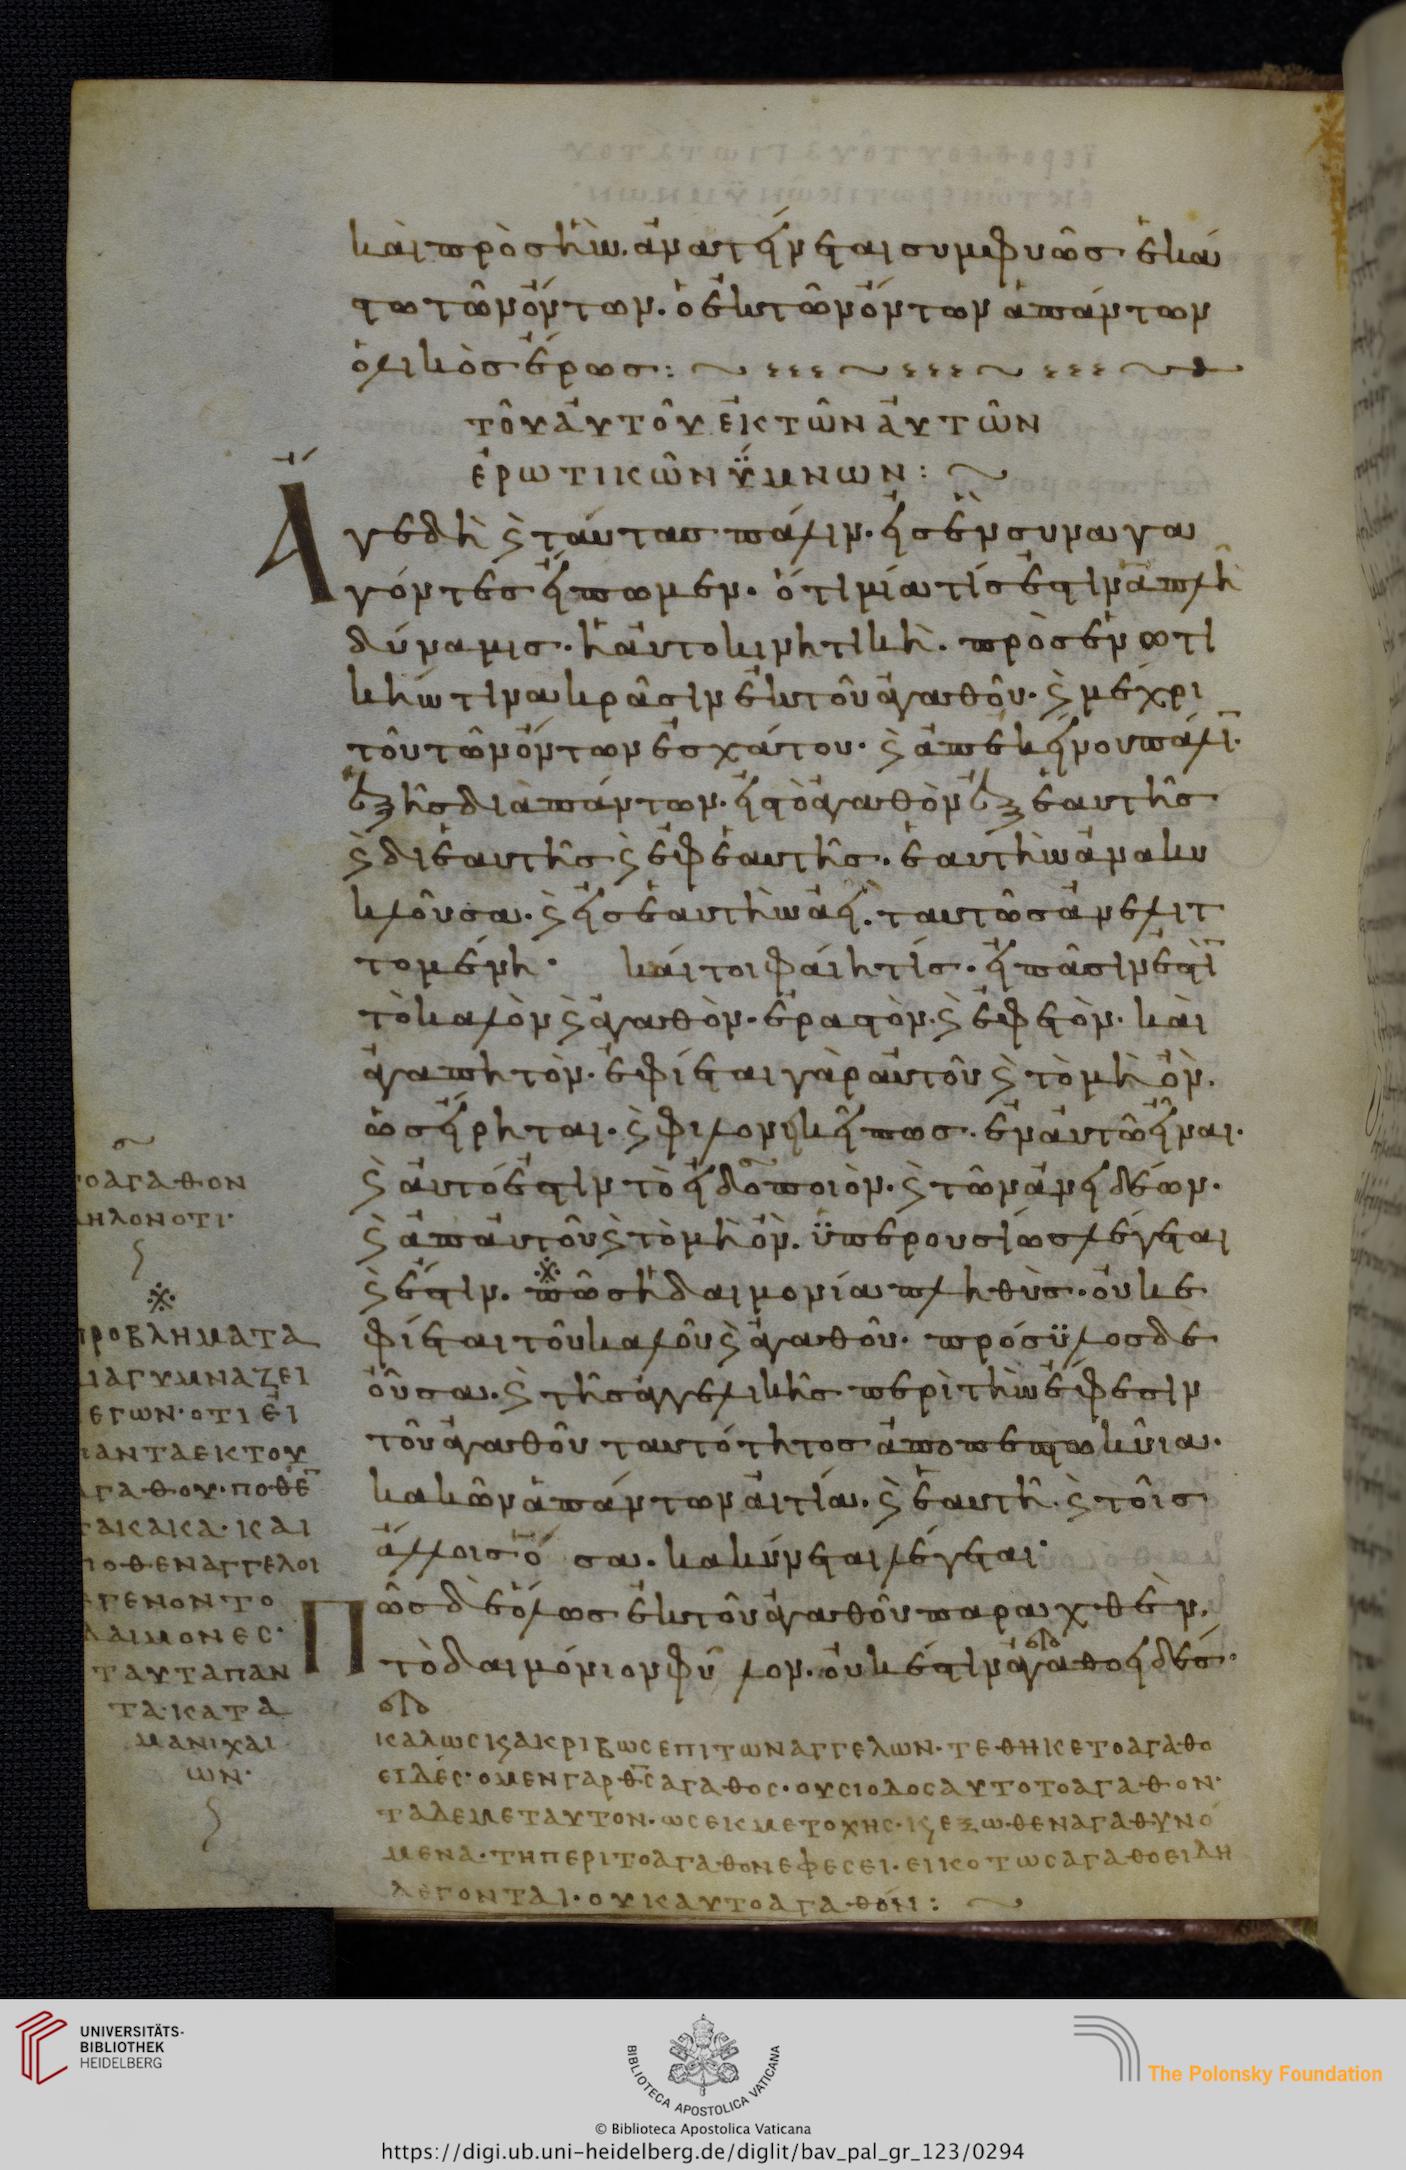 καὶ πρὸς ἣν ἀνατείνεται συμφυῶς ἑκά
στω τῶν ὄντων. ὁ ἐκ τῶν ὄντων ἁπάντων
ὁλικὸς ἔρως:
τοῦ ἀυτοῦ ἐκ τῶν ἀυτῶν
ἐρωτικῶν ὕμνων:
Ἄγε δὴ ϗ ταύτας πάλιν. εἰς ἓν συναγα
γόντες εἴπωμεν. ὅτι μία τίς ἐστιν ἁπλῆ
δύναμις. ἡ ἀυτοκινητικὴ. πρὸς ἑνωτι
κήν τινα κρᾶσιν ἐκ τοῦ ἀγαθοῦ. ϗ μέχρι
τοῦ τῶν ὄντων ἐσχάτου. ϗ ἀπ εκείνου πάλι.
ἑξῆς διὰ πάντων. εἰς τὸ ἀγαθὸν ἐξ ἑαυτῆς
ϗ δι ἑαυτῆς ϗ ἐφ ἑαυτῆς. ἑαυτὴν ἀνακυ
κλοῦσα. ϗ εἰς ἑαυτὴν ἀεὶ. ταυτῶς ἀνελιτ
τομένη. καίτοι φαίη τίς. εἰ πᾶσιν ἐστὶ
τὸ καλὸν ϗ ἀγαθὸν. ἐραστὸν. ϗ ἐφετὸν. καὶ
ἀγαπητὸν. ἐφίεται γὰρ ἀυτοῦ ϗ τὸ μὴ ὂν.
ὡς εἴρηται. ϗ φιλονεικεῖ πως. ἐν ἀυτῶ εἶναι.
ϗ ἀυτό ἐστιν τὸ εἰδοποιὸν. ϗ τῶν ἀνειδέων.
ϗ ἀπ ἀυτοῦ ϗ τὸ μὴ ὂν. ὑπερουσίως λέγεται
ϗ ἔστιν. πῶς ἡ δαιμονία πληθὺς. οὐκ ε
φίεται τοῦ καλοῦ ϗ ἀγαθοῦ. πρόσϋλος δὲ
οὖσα. ϗ τῆς ἀγγελικῆς περὶ τὴν ἔφεσιν
τοῦ ἀγαθοῦ ταυτότητος ἀποπεπτωκυῖα.
κακῶν ἁπάντων αἰτία. ϗ ἑαυτῆ. ϗ τοῖς
ἄλλοις ὅσα. κακύνεται λέγεται.
Πῶς δὲ ὅλως ἐκ τοῦ ἀγαθοῦ παραχθὲν.
τὸ δαιμόνιον φῦλον. οὐκ ἔστιν ἀγαθοειδές.
καλως ϗ ακριβως επι των αγγελων. τεθηκε το αγαθο
ειδές. ο μεν γαρ θς αγαθος. ουσιοδος αυτο το αγαθον.
τα δε μετ αυτον. ως εκ μετοχης. ϗ εξωθεν αγαθυνό
μενα. τη περι το αγαθον εφεσει. εικοτως αγαθοειδη
λεγονται. ουκ αυτοαγαθόν:
τοαγαθον
δηλονοτι.
προβλήματα
διαγυμναζει
λεγων. οτι ει
παντα εκ του
αγαθου. ποθε
τα κακα. και
ποθεν αγγελοι
εγενοντο
δαιμονες.
ταυτα παν
τα. κατα
μανιχαι
ων.
UNIVERSITÄTS-
BIBLIOTHEK
HEIDELBERG
BIBLIOTECA APOSTOLICA VATICANA
The Polonsky Foundation
© Biblioteca Apostolica Vaticana
https://digi.ub.uni-heidelberg.de/diglit/bav_pal_gr_123/0294